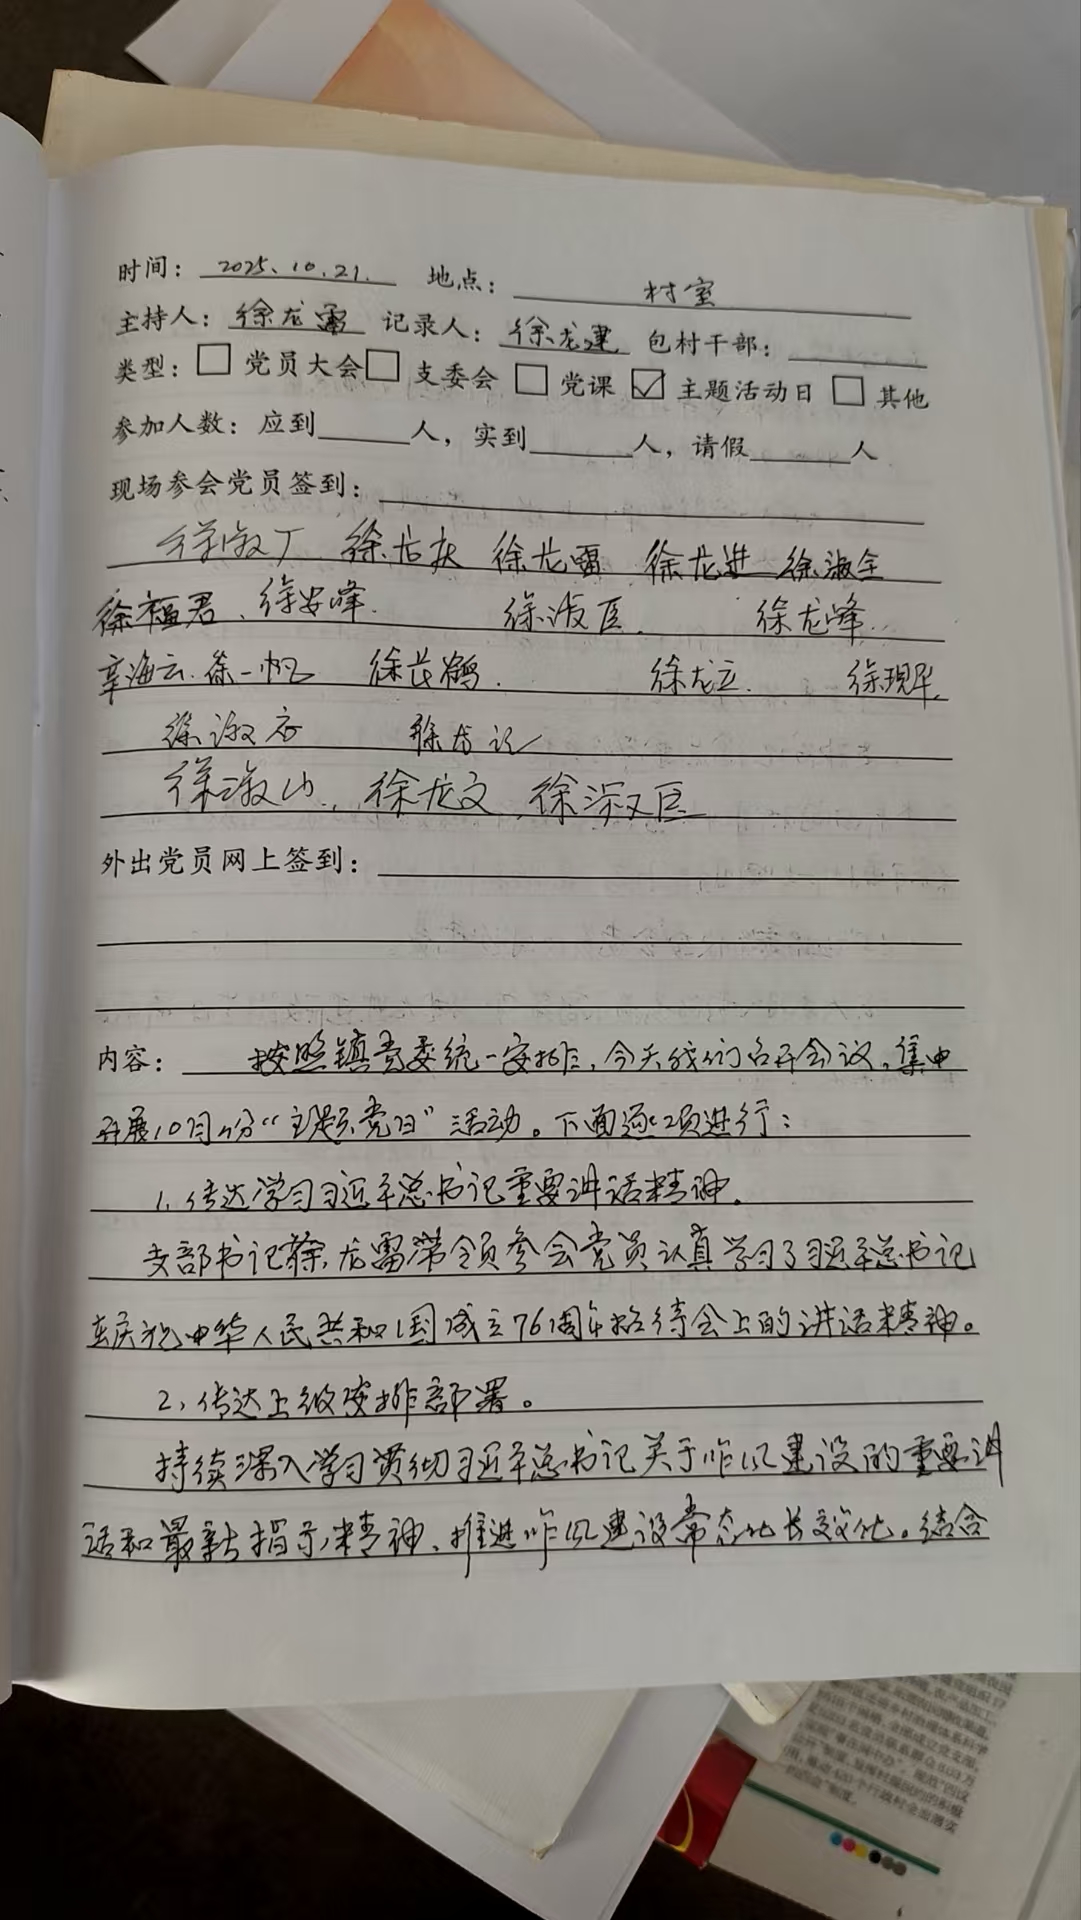 时间：2025.10.21. 地点：村室
主持人：徐龙雷 记录人：徐龙建 包村干部：
类型：□ 党员大会□ 支委会 □ 党课 ☑ 主题活动日 □ 其他
参加人数：应到 人，实到 人，请假 人
现场参会党员签到：
徐龙雷 徐龙进 徐淑全
徐福君、徐安峰. 徐淑臣. 徐龙峰.
辛海云. 徐一帆 徐茂鹤. 徐龙立. 徐现军.
徐淑
徐淑山. 徐龙文. 徐深义臣
外出党员网上签到：
内容： 按照镇党委统一安排，今天我们召开会议，集中
开展10月份“主题党日”活动。下面逐项进行：
1、传达学习习近平总书记重要讲话精神。
支部书记徐龙雷带领参会党员认真学习了习近平总书记
在庆祝中华人民共和国成立76周年招待会上的讲话精神。
2、传达上级安排部署。
持续深入学习贯彻习近平总书记关于作风建设的重要讲
话和最新指示精神、推进作风建设常态化长效化。结合